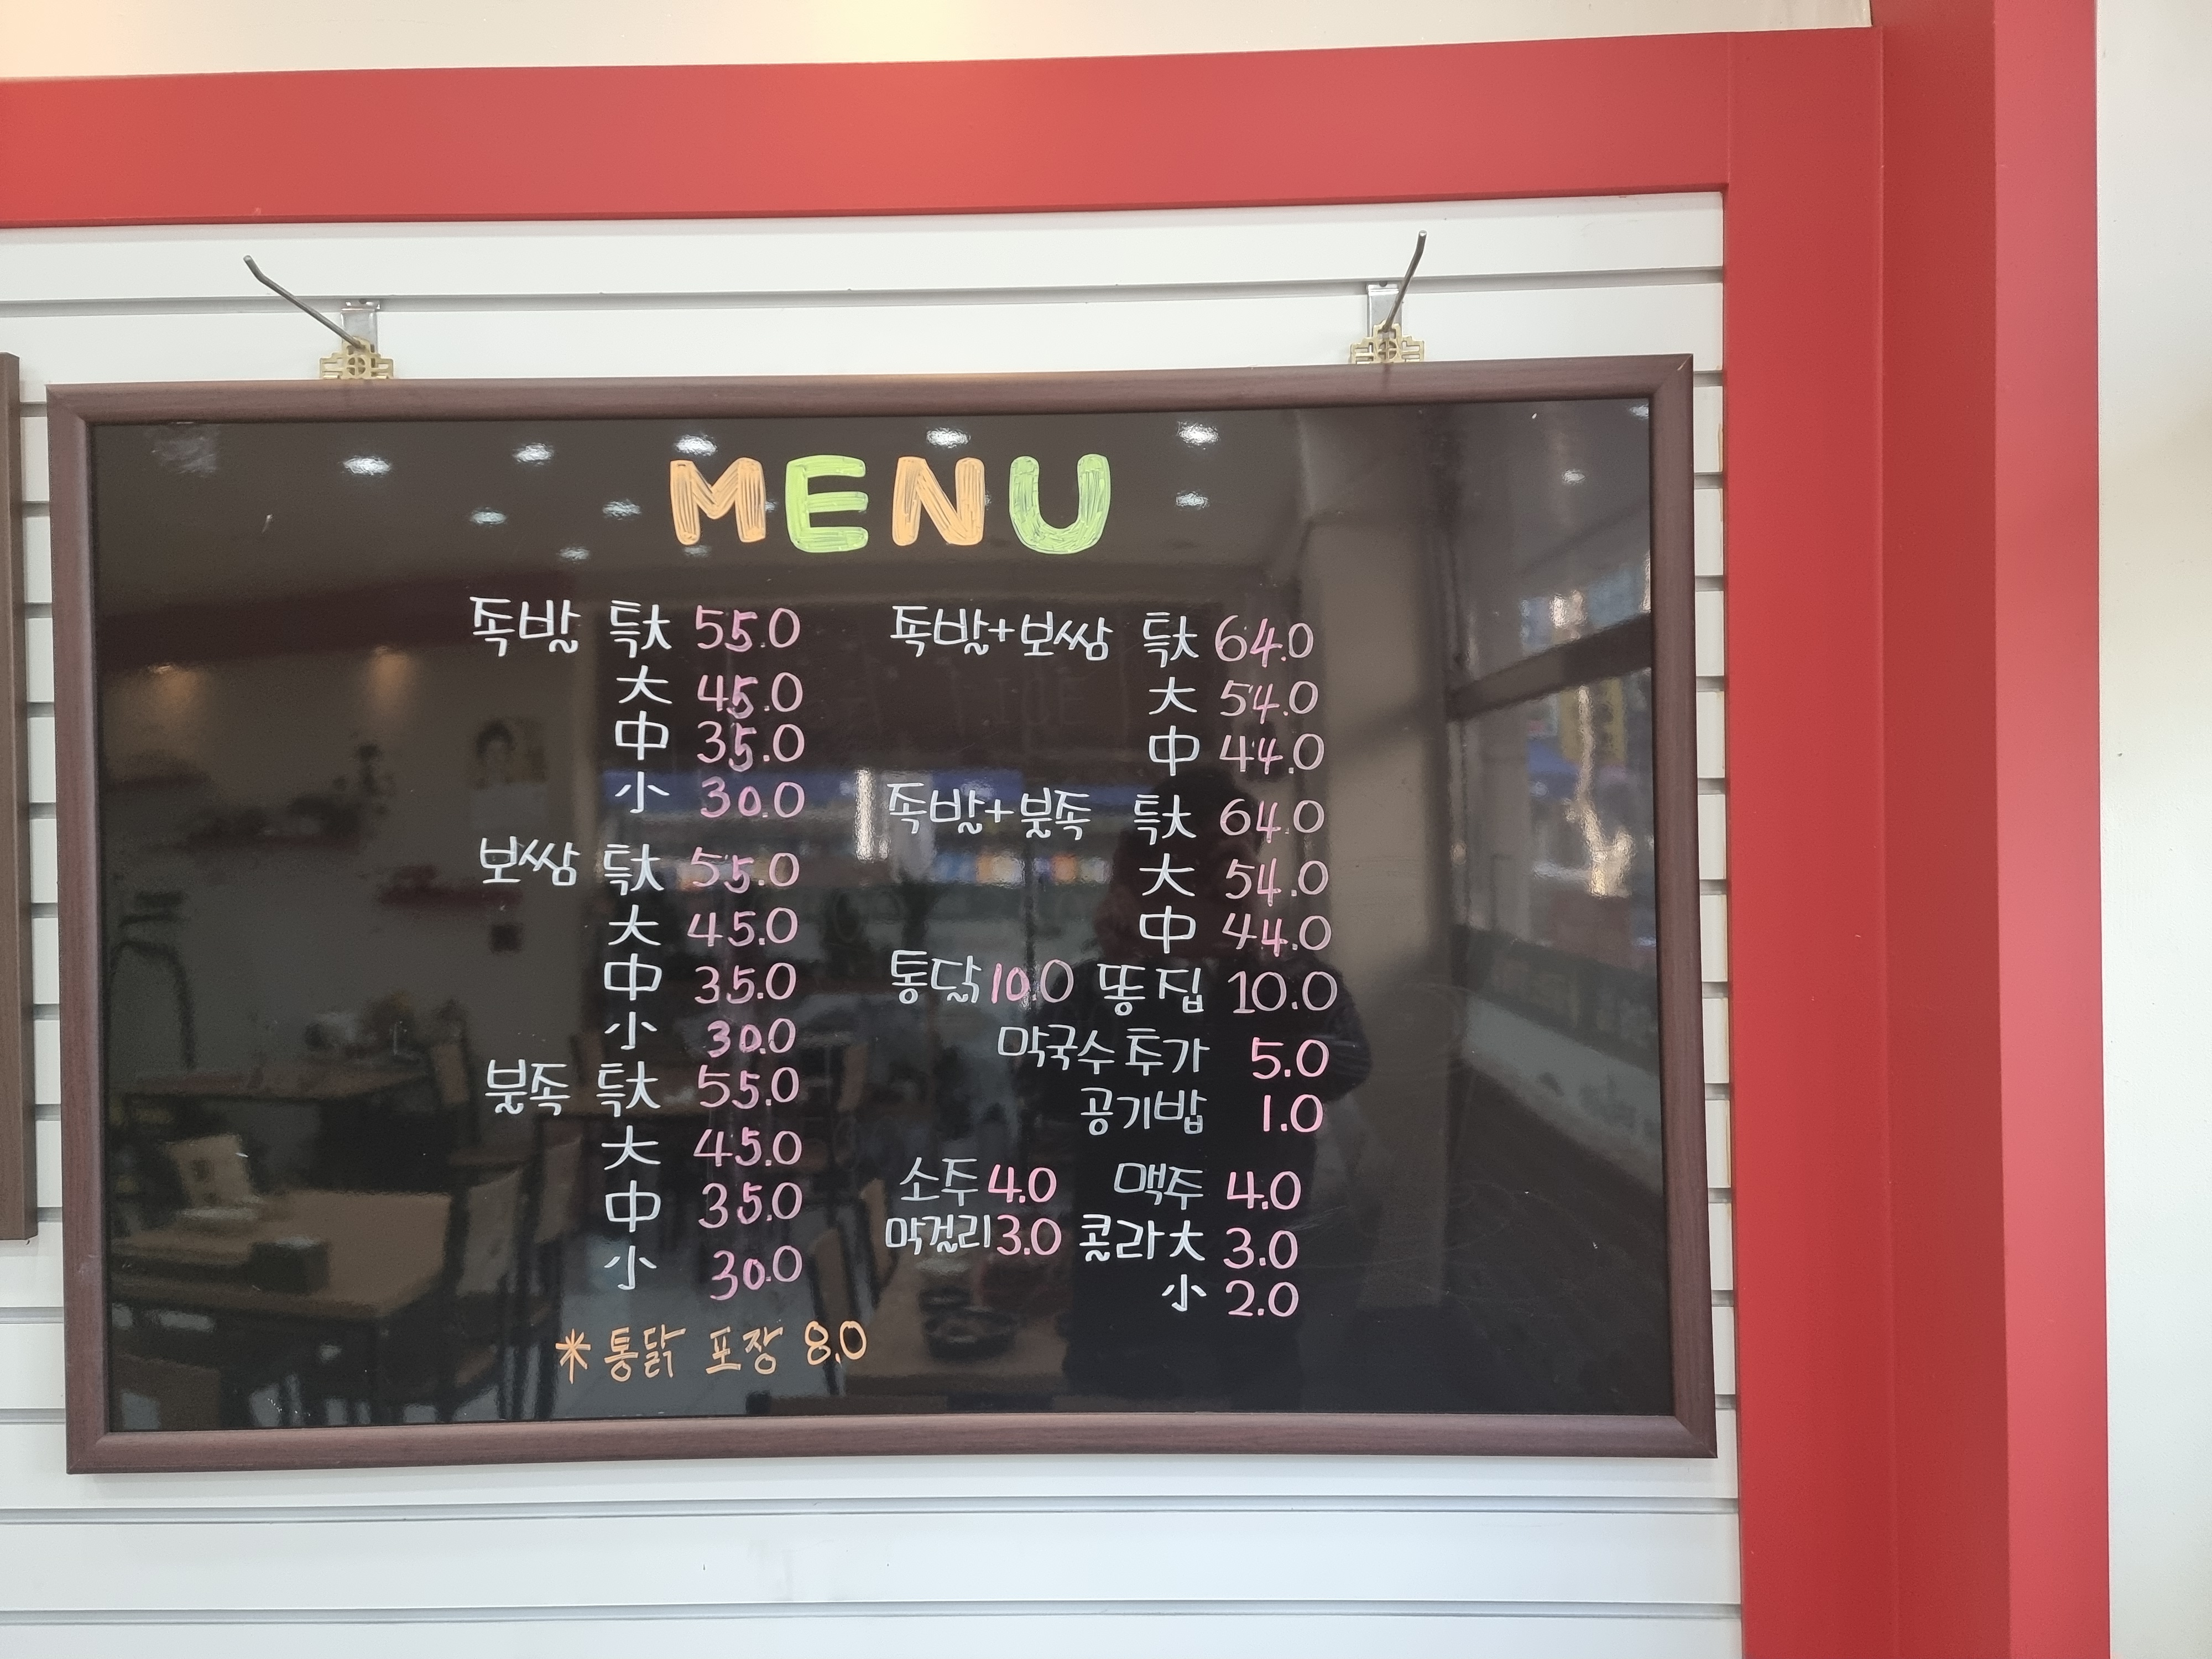 MENU
족발 특大 55.0
大 45.0
中 35.0
小 30.0
보쌈 특大 55.0
大 45.0
中 35.0
小 30.0
불족 특大 55.0
大 45.0
中 35.0
小 30.0
* 통닭 포장 8.0
족발+보쌈 특大 64.0
大 54.0
中 44.0
족발+불족 특大 64.0
大 54.0
中 44.0
통닭 10.0 똥집 10.0
막국수 투가 5.0
공기밥 1.0
소주 4.0 맥주 4.0
막걸리 3.0 콜라 大 3.0
小 2.0